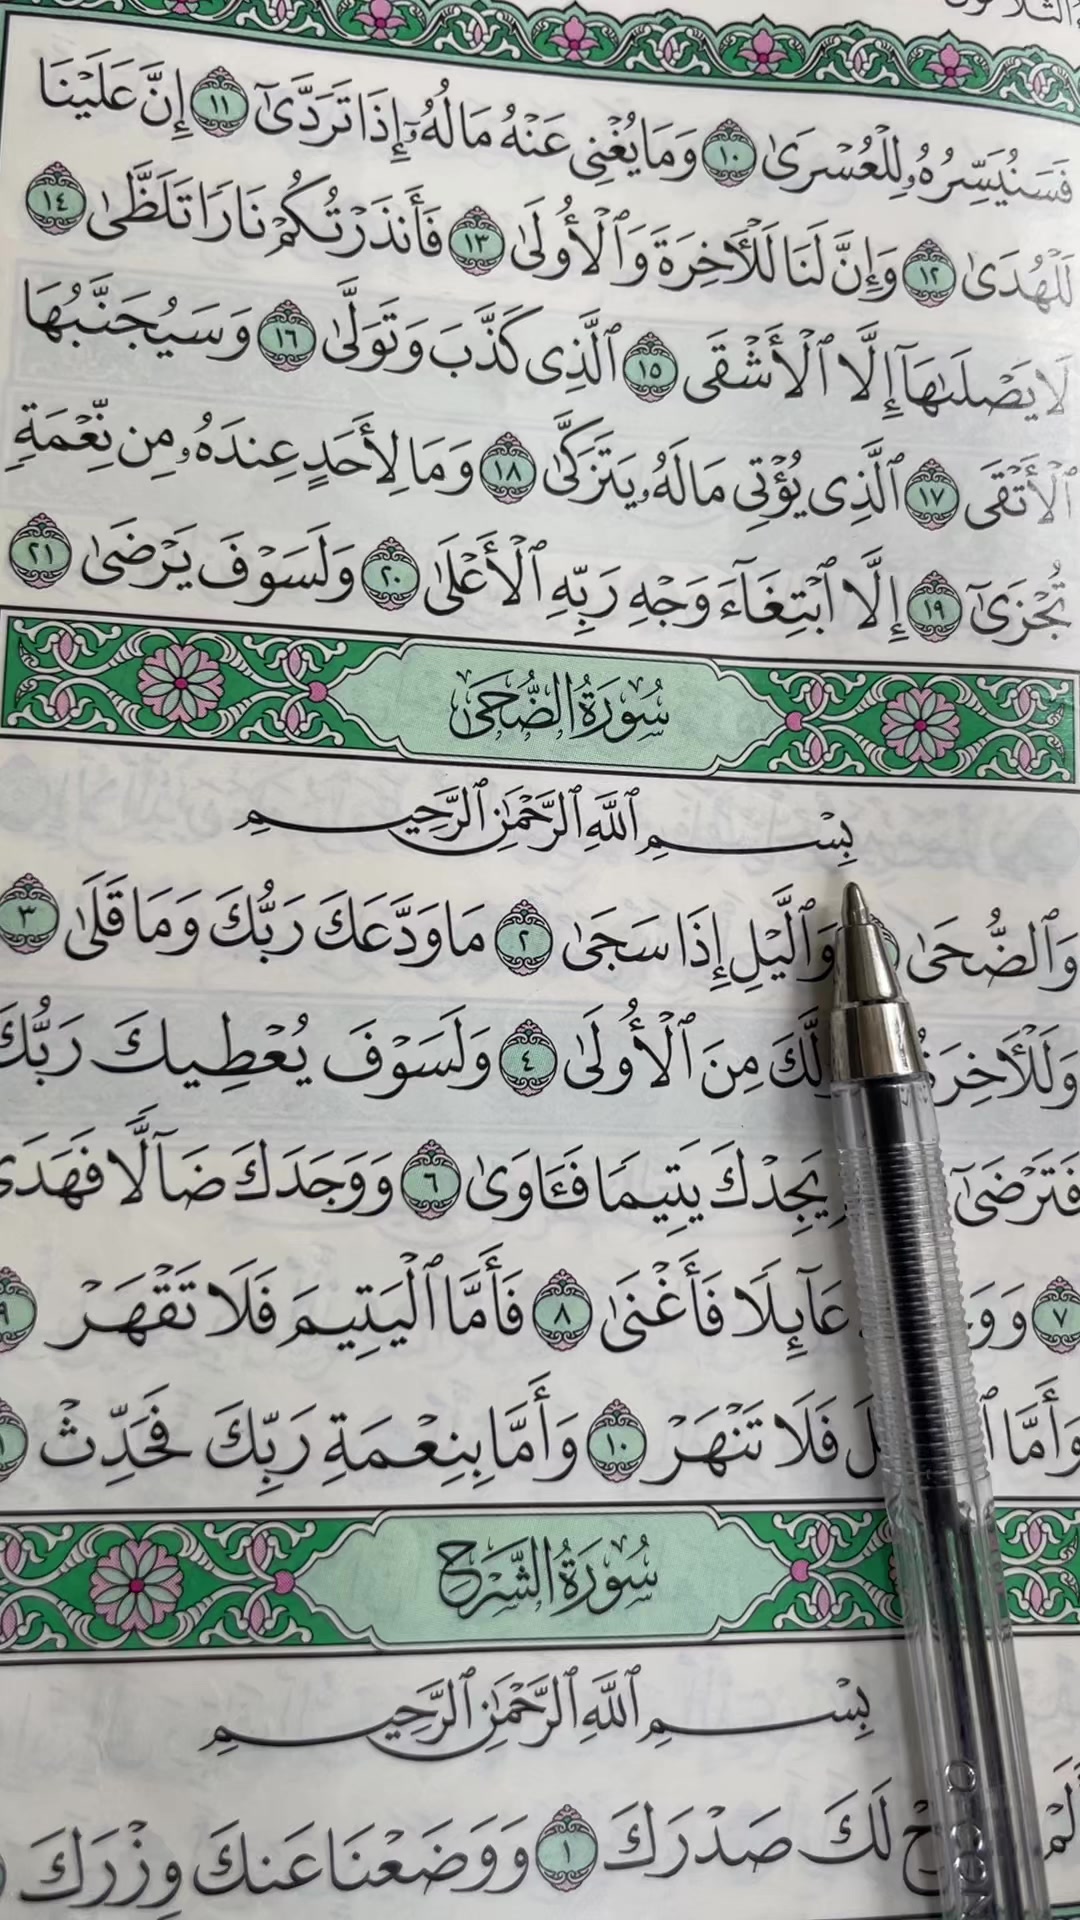 الثلاثون
فَسَنُيَسِّرُهُۥ لِلْعُسْرَىٰ ١٠ وَمَا يُغْنِى عَنْهُ مَالُهُۥٓ إِذَا تَرَدَّىٰٓ ١١ إِنَّ عَلَيْنَا
لَلْهُدَىٰ ١٢ وَإِنَّ لَنَا لَلْـَٔاخِرَةَ وَٱلْأُولَىٰ ١٣ فَأَنذَرْتُكُمْ نَارًا تَلَظَّىٰ ١٤
لَا يَصْلَىٰهَآ إِلَّا ٱلْأَشْقَى ١٥ ٱلَّذِى كَذَّبَ وَتَوَلَّىٰ ١٦ وَسَيُجَنَّبُهَا
ٱلْأَتْقَى ١٧ ٱلَّذِى يُؤْتِى مَالَهُۥ يَتَزَكَّىٰ ١٨ وَمَا لِأَحَدٍ عِندَهُۥ مِن نِّعْمَةٍ
تُجْزَىٰٓ ١٩ إِلَّا ٱبْتِغَآءَ وَجْهِ رَبِّهِ ٱلْأَعْلَىٰ ٢٠ وَلَسَوْفَ يَرْضَىٰ ٢١
سُورَةُ الضُّحَىٰ
بِسْمِ ٱللَّهِ ٱلرَّحْمَٰنِ ٱلرَّحِيمِ
وَٱلضُّحَىٰ وَٱلَّيْلِ إِذَا سَجَىٰ ٢ مَا وَدَّعَكَ رَبُّكَ وَمَا قَلَىٰ ٣
وَلَلْـَٔاخِرَةُ لَّكَ مِنَ ٱلْأُولَىٰ ٤ وَلَسَوْفَ يُعْطِيكَ رَبُّكَ
فَتَرْضَىٰٓ يَجِدْكَ يَتِيمًا فَـَٔاوَىٰ ٦ وَوَجَدَكَ ضَآلًّا فَهَدَىٰ
٧ عَآئِلًا فَأَغْنَىٰ ٨ فَأَمَّا ٱلْيَتِيمَ فَلَا تَقْهَرْ ٩
وَأَمَّا فَلَا تَنْهَرْ ١٠ وَأَمَّا بِنِعْمَةِ رَبِّكَ فَحَدِّثْ
سُورَةُ الشَّرْحِ
بِسْمِ ٱللَّهِ ٱلرَّحْمَٰنِ ٱلرَّحِيمِ
لَكَ صَدْرَكَ ١ وَوَضَعْنَا عَنكَ وِزْرَكَ